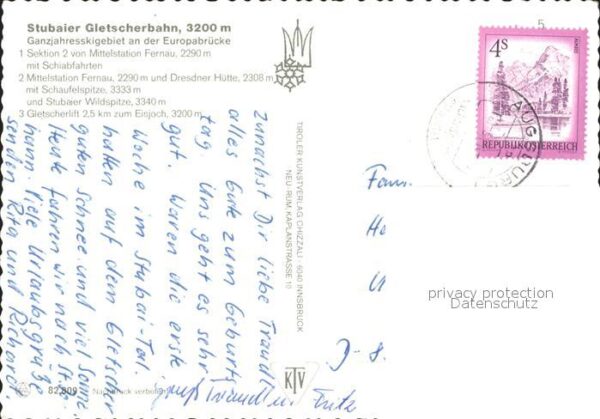 Stubaier Gletscherbahn, 3200 m
Ganzjahresskigebiet an der Europabrücke
1 Sektion 2 von Mittelstation Fernau, 2290 m
mit Schiabfahrten
2 Mittelstation Fernau, 2290 m und Dresdner Hütte, 2308 m
mit Schaufelspitze, 3333 m
und Stubaier Wildspitze, 3340 m
3 Gletscherlift 2,5 km zum Eisjoch, 3200 m
Zunächst Dir liebe Traudl
alles Gute zum Geburts
tag. Uns geht es sehr
gut. Waren die erste
Woche im Stubai-Tal.
hatten auf dem Gletscher
guten Schnee und viel Sonne
Heute fahren wir nach St.
Viele Urlaubsgrüße
Rita und
Gruß Traudl u. Fritz
TIROLER KUNSTVERLAG CHIZZALI · 6040 INNSBRUCK
NEU-RUM, KAPLANSTRASSE 10
KTV
82.809
Nachdruck verboten
5
4S
REPUBLIK ÖSTERREICH
AUGSBURG
Fam.
D-8.
privacy protection
Datenschutz